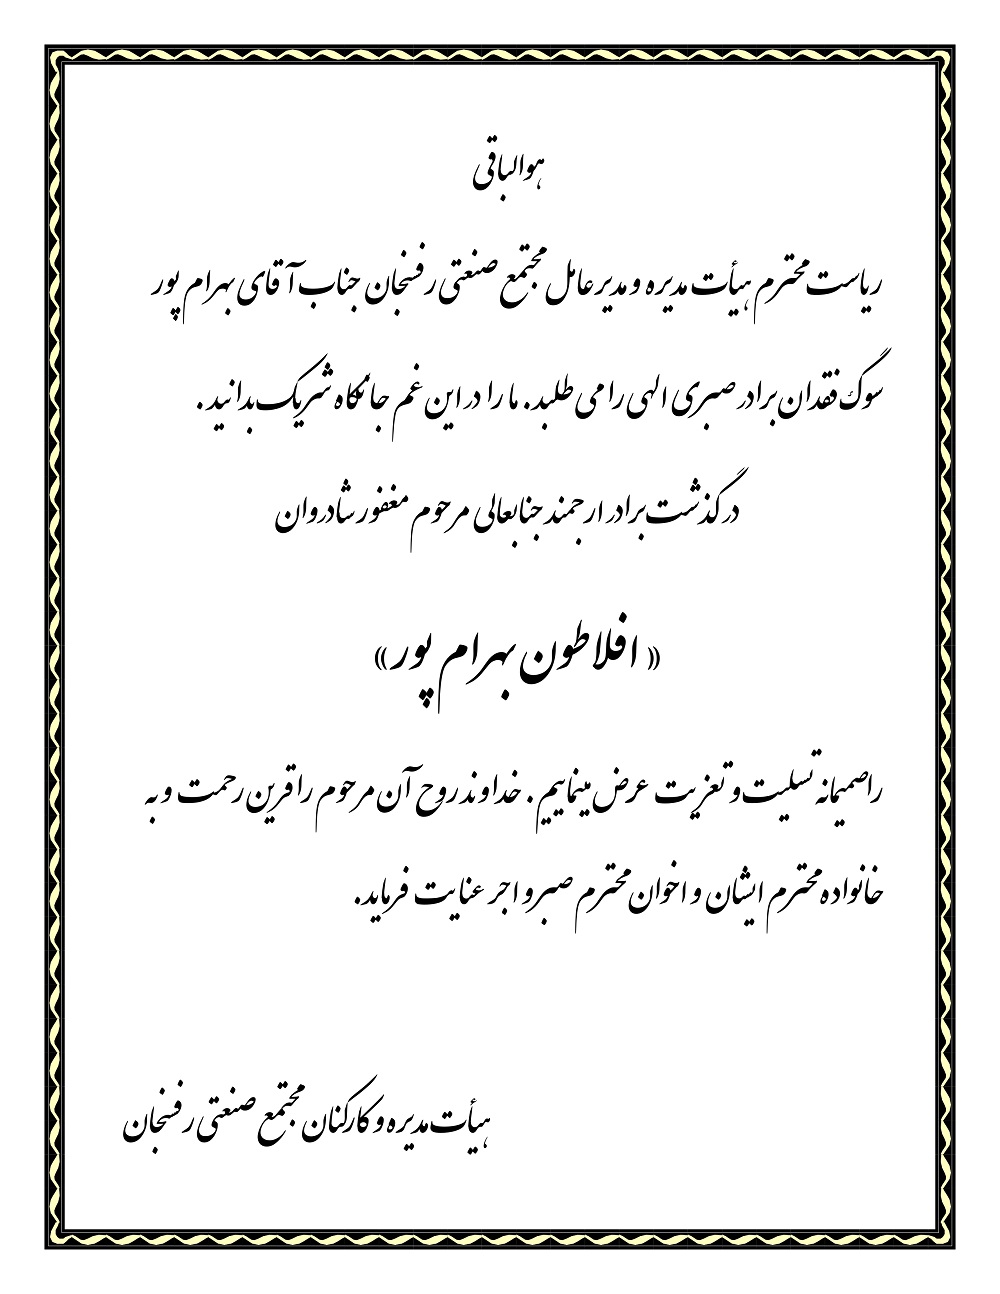 هوالباقی
ریاست محترم هیأت مدیره و مدیرعامل مجتمع صنعتی رفسنجان جناب آقای بهرام پور
سوگ فقدان برادر صبری الهی را می طلبد. ما را در این غم جانکاه شریک بدانید.
درگذشت برادر ارجمند جنابعالی مرحوم مغفور شادروان
« افلاطون بهرام پور»
را صمیمانه تسلیت و تعزیت عرض مینماییم. خداوند روح آن مرحوم را قرین رحمت و به
خانواده محترم ایشان و اخوان محترم صبر و اجر عنایت فرماید.
هیأت مدیره و کارکنان مجتمع صنعتی رفسنجان